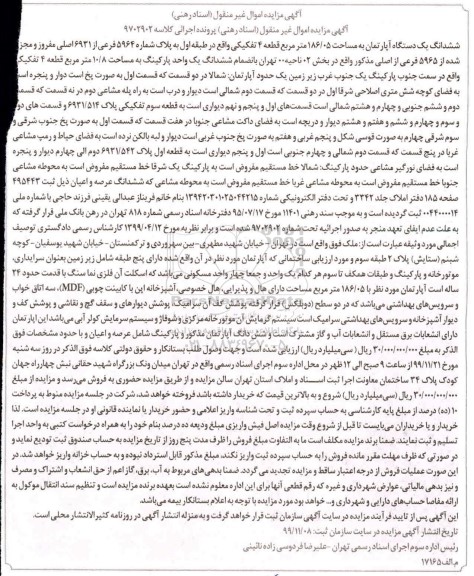 آگهی مزایده اموال غیر منقول (اسناد رهنی)
آگهی مزایده اموال غیر منقول (اسناد رهنی) پرونده اجرائی کلاسه ۹۷۰۲۹۰۲
ششدانگ یک دستگاه آپارتمان به مساحت ۱۸۶/۰۵ متر مربع قطعه ۴ تفکیکی واقع در طبقه اول به پلاک شماره ۵۹۶۴ فرعی از ۶۹۳۱ اصلی مفروز و مجزی
شده از ۵۹۶۵ فرعی از اصلی مذکور واقع در بخش ۰۲ ناحیه ۰۰ تهران بانضمام ششدانگ یک واحد پارکینگ به مساحت ۱۰/۸ متر مربع قطعه ۴ تفکیکی
واقع در سمت جنوب پارکینگ یک جنوب غرب زیر زمین یک حدود آپارتمان: شمالا در دو قسمت که قسمت اول به صورت پخ است دیوار و پنجره است
به فضای کوچه شش متری اصلاحی شرقا اول در دو قسمت که قسمت دوم شمالی است دیوار و درب است به راه پله مشاعی دوم در نه قسمت که قسمتهای
دوم و ششم جنوبی و چهارم و هشتم شمالی است قسمت‌های اول و پنجم و نهم دیواری است به قطعه سوم تفکیکی پلاک ۶۹۳۱/۵۱۴ و قسمت های دوم
و سوم و چهارم و ششم و هفتم و هشتم دیوار و دریچه است به فضای داکت مشاعی جنوبا در هفت قسمت که قسمت اول به صورت پخ جنوب شرقی و
سوم شرقی چهارم به صورت قوسی شکل و پنجم غربی و هفتم به صورت پخ جنوب غربی است دیوار و لبه بالکن نرده است به فضای حیاط و رمپ مشاعی
غربا در پنج قسمت که قسمت دوم شمالی و چهارم جنوبی است اول و پنجم دیواری است به قطعه اول پلاک ۶۹۳۱/۵۴۲ دوم الی چهارم دیوار و پنجره
است به فضای نورگیر مشاعی حدود پارکینگ: شمالا خط مستقیم مفروض است به پارکینگ یک شرقا خط مستقیم مفروض است به محوطه مشاعی
جنوبا خط مستقیم مفروض است به محوطه مشاعی غربا خط مستقیم مفروض است به محوطه مشاعی که ششدانگ عرصه و اعیان ذیل ثبت ۴۹۵۴۴۳
صفحه ۱۸۵ دفتر املاک جلد ۳۴۴۲ و تحت دفتر الکترونیکی شماره ۱۳۹۴۲۰۳۰۱۰۲۵۰۴۴۲۱۵ بنام خانم فریناز عبدالی یقینی فرزند حاجی با شماره ملی
۰۰۴۴۰۰۰۰۱۴ ثبت گردیده است و به موجب سند رهنی ۱۱۴۰۱ مورخ ۹۵/۰۷/۱۷ دفترخانه اسناد رسمی شماره ۸۱۸ تهران در رهن بانک ملی قرار گرفته که
به علت عدم ایفای تعهد منجر به صدور اجرائیه تحت شماره ۹۷۰۲۹۰۲ شده است و برابر نظریه مورخ ۱۳۹۹/۰۴/۱۲ کارشناس رسمی دادگستری توصیف
اجمالی مورد وثیقه عبارت است از: ملک فوق واقع است در تهران - خیابان شهید مطهری - بین سهروردی و ترکمنستان - خیابان شهید یوسفیان - کوچه
شبنم (ستایش) پلاک ۲ طبقه سوم و مورد ارزیابی ساختمانی که آپارتمان مورد نظر در آن واقع شده دارای پنج طبقه شامل زیر زمین بعنوان سرایداری،
موتورخانه و پارکینگ و طبقات همکف تا سوم هر کدام یک واحد و جمعا چهار واحد مسکونی می‌باشد که اسکلت آن فلزی نما سنگ با قدمت حدود ۲۴
ساله است آپارتمان مورد نظر با ۱۸۶/۰۵ متر مربع مساحت دارای هال و پذیرایی، هال خصوصی، آشپزخانه اپن با کابینت چوبی (MDF)، سه اتاق خواب
و سرویس‌های بهداشتی می‌باشد که در دو سطح (دوبلکس) قرار گرفته پوشش کف آن سرامیک، پوشش دیوارهای و سقف گچ و نقاشی و پوشش کف و
دیوار آشپزخانه و سرویس‌های بهداشتی سرامیک است سیستم گرمایش آن موتورخانه مرکزی و شوفاژ و سیستم سرمایش کولر آبی می‌باشد این آپارتمان
دارای انشعابات برق مستقل و انشعابات آب و گاز مشترک است و شش دانگ آپارتمان مذکور و پارکینگ شامل عرصه و اعیان و با حدود مشخصات فوق
الذکر به مبلغ ۳۰/۰۰۰/۰۰۰/۰۰۰ ریال (سی میلیارد ریال) ارزیابی شده است و جهت وصول طلب بستانکار و حقوق دولتی کلاسه فوق الذکر در روز سه شنبه
مورخ ۹۹/۱۱/۲۱ از ساعت ۹ صبح الی ۱۲ ظهر در محل اداره سوم اجرای اسناد رسمی واقع در تهران میدان ونک بزرگراه شهید حقانی نبش چهارراه جهان
کودک پلاک ۳۴ ساختمان معاونت اجرا ثبت اسناد و املاک استان تهران سالن مزایده و از طریق مزایده حضوری به فروش می‌رسد و مزایده از مبلغ
۳۰/۰۰۰/۰۰۰/۰۰۰ ریال (سی میلیارد ریال) شروع و به بالاترین قیمت که خریدار داشته باشد فروخته خواهد شد، شرکت در جلسه مزایده منوط به پرداخت
۱۰ (ده) درصد از مبلغ پایه کارشناسی به حساب سپرده ثبت و تحت شناسه واریز اعلامی و حضور خریدار یا نماینده قانونی او در جلسه مزایده است، لذا
خریدار و یا خریداران می‌بایست تا قبل از شروع وقت مزایده اصل فیش واریزی مبلغ ودیعه ده درصد بنام خود را به همراه درخواست کتبی به واحد اجرا
تسلیم و ثبت نمایند. ضمنا برنده مزایده مکلف است ما به التفاوت مبلغ فروش را ظرف مدت پنج روز از تاریخ مزایده به حساب صندوق ثبت تودیع نماید و
در صورتی که ظرف مهلت مقرر مانده فروش را به حساب سپرده ثبت واریز نکند، مبلغ مذکور قابل استرداد نبوده و به حساب خزانه واریز خواهد شد. در
این صورت عملیات فروش از درجه اعتبار ساقط و مزایده تجدید می گردد. ضمنا بدهی‌های مربوط به آب، برق، گاز اعم از حق انشعاب و اشتراک و مصرف
و نیز بدهی مالیاتی، عوارض شهرداری و غیره که رقم قطعی آنها برای این اداره معلوم نشده است بعهده برنده مزایده است و تنظیم سند انتقال موکول به
ارائه مفاصا حساب‌های دارایی و شهرداری و... خواهد بود مورد مزایده با توجه به اعلام بستانکار بیمه می‌باشد.
این آگهی پس از تایید فرآیند مزایده در سایت آگهی سازمان ثبت قرار خواهد گرفت و به منزله انتشار آگهی در روزنامه کثیرالانتشار محلی است.
تاریخ انتشار آگهی مزایده در سایت سازمان ثبت: ۹۹/۱۱/۰۸
رئیس اداره سوم اجرای اسناد رسمی تهران - علیرضا فردوسی زاده نائینی
م.الف ۱۷۱۶۵